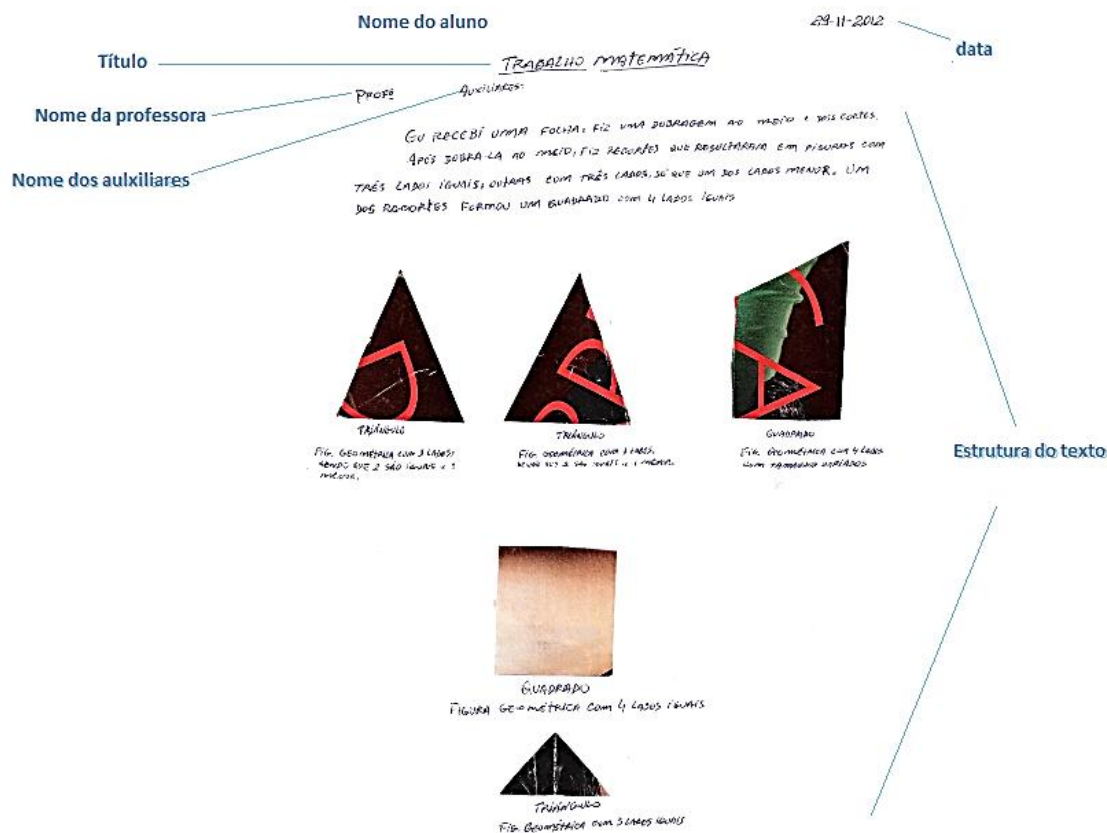 Nome do aluno
29-11-2012
data
Título
TRABALHO MATEMÁTICA
Nome da professora
PROFª
AUXILIARES:
Nome dos aulxiliares
EU RECEBI UMA FOLHA, FIZ UMA DOBRAGEM AO MEIO E DOIS CORTES.
APÓS DOBRA-LA AO MEIO, FIZ RECORTES QUE RESULTARAM EM FIGURAS COM
TRÊS LADOS IGUAIS, OUTRAS COM TRÊS LADOS, SÓ QUE UM DOS LADOS MENOR. UM
DOS RECORTES FORMOU UM QUADRADO COM 4 LADOS IGUAIS
TRIÂNGULO
FIG. GEOMÉTRICA COM 3 LADOS,
SENDO QUE 2 SÃO IGUAIS E 1
MENOR.
TRIÂNGULO
FIG. GEOMÉTRICA COM 3 LADOS,
SENDO QUE 2 SÃO IGUAIS E 1 MENOR.
QUADRADO
FIG. GEOMÉTRICA COM 4 LADOS
COM TAMANHO VARIADOS
Estrutura do texto
QUADRADO
FIGURA GEOMÉTRICA COM 4 LADOS IGUAIS
TRIÂNGULO
FIG. GEOMÉTRICA COM 3 LADOS IGUAIS